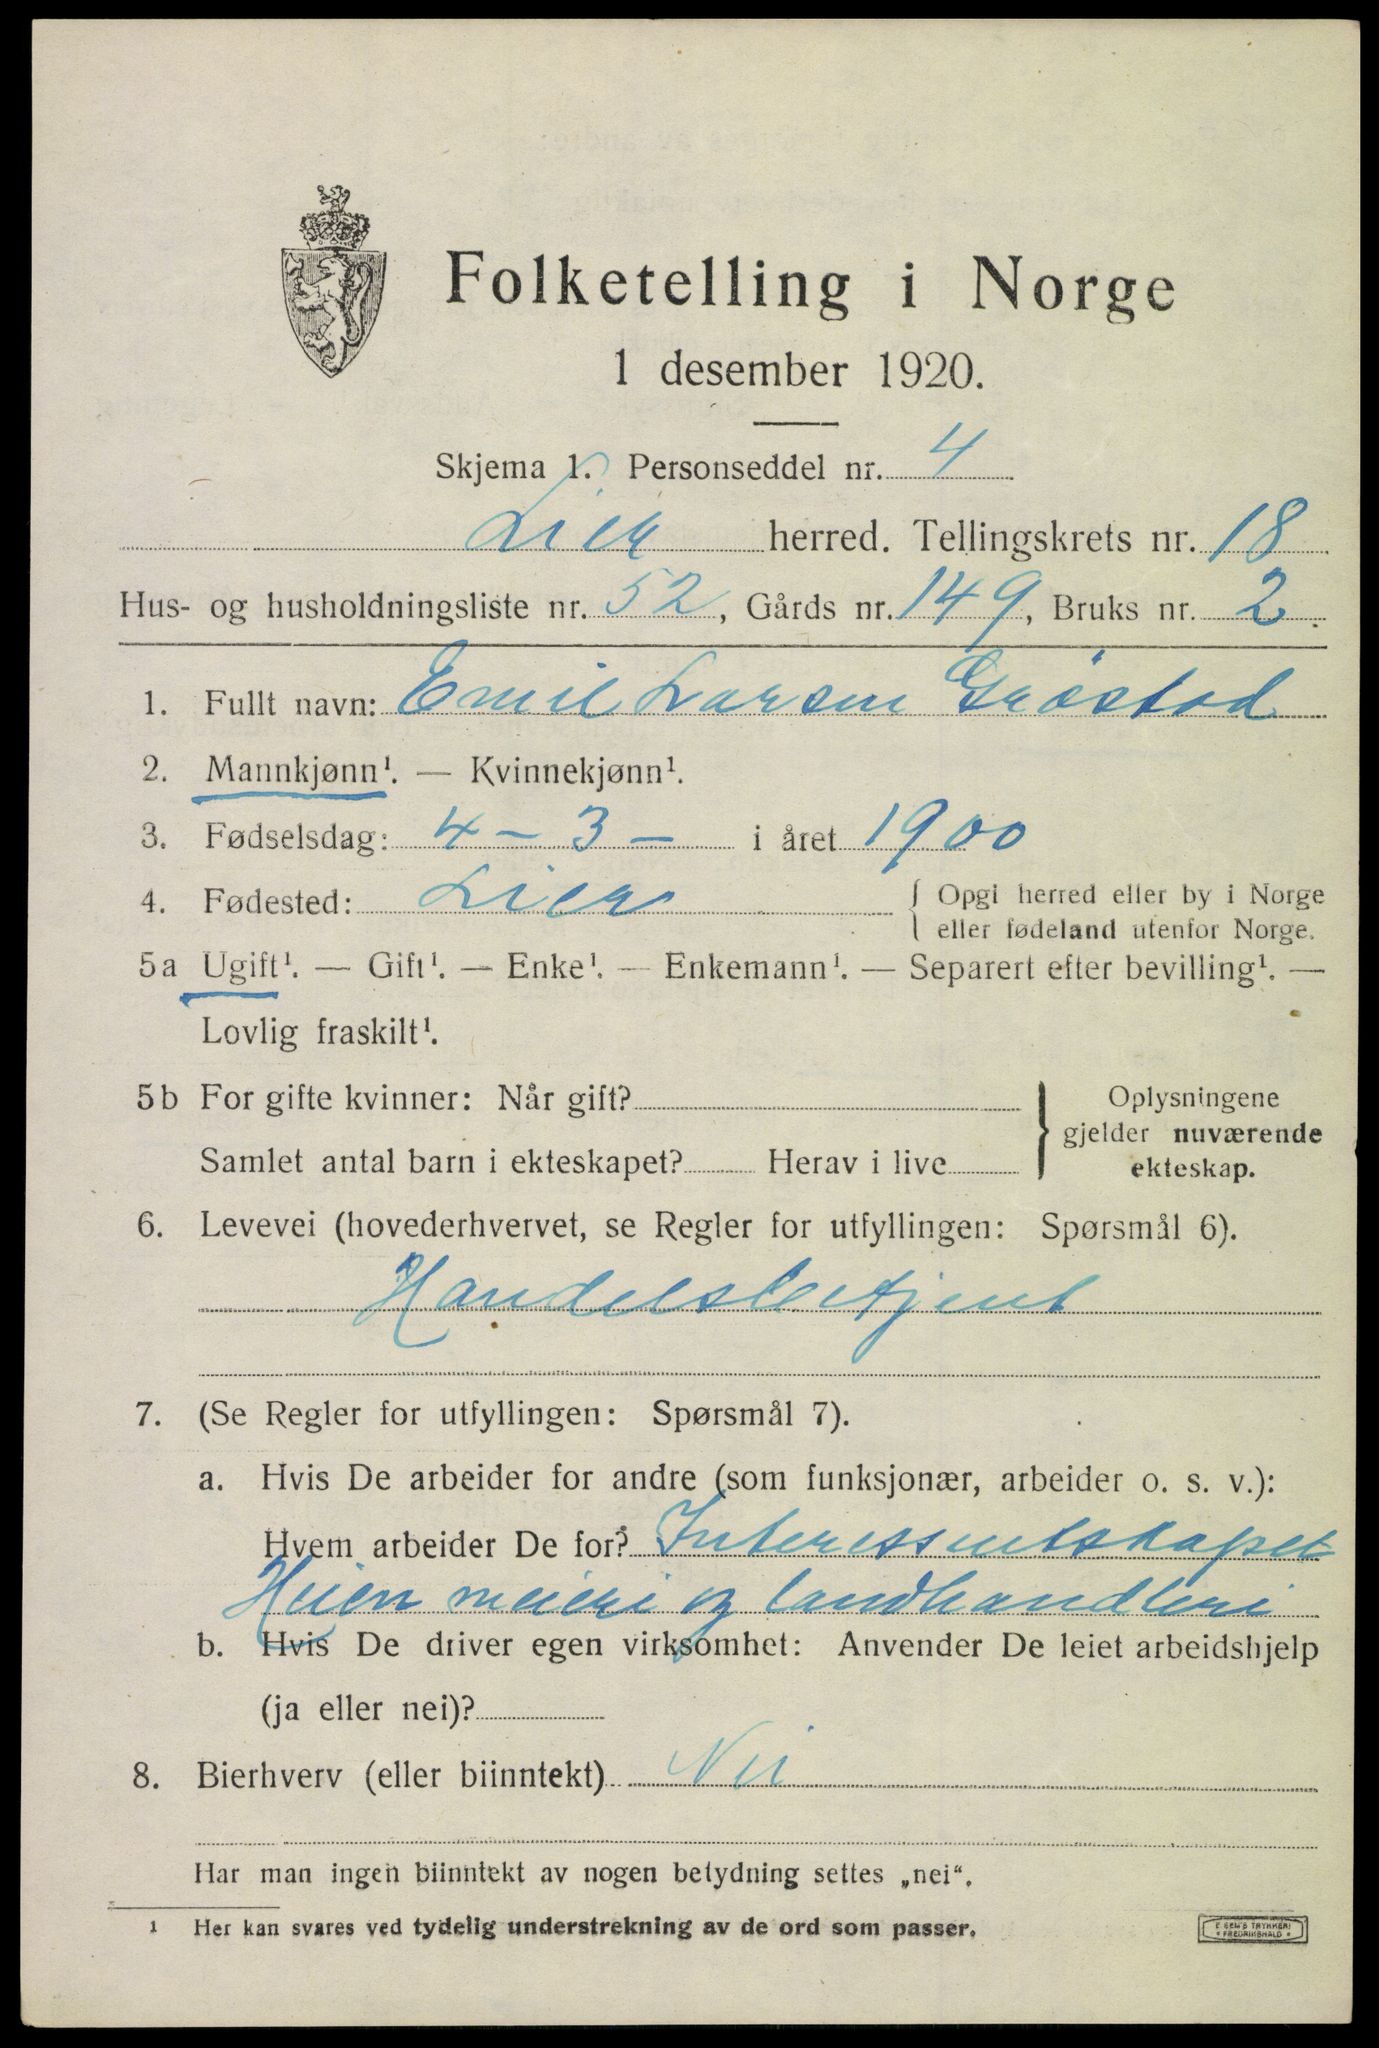 Folketelling i Norge
1 desember 1920.
Skjema 1. Personseddel nr. 4
Lier herred. Tellingskrets nr. 18
Hus- og husholdningsliste nr. 52, Gårds nr. 149, Bruks nr. 2.
1. Fullt navn: Emil Larsen Gröstad
2. Mannkjønn¹. — Kvinnekjønn¹.
3. Fødselsdag: 4 - 3 - i året 1900
4. Fødested: Lier { Opgi herred eller by i Norge
eller fødeland utenfor Norge.
5a Ugift¹. — Gift¹. — Enke¹. — Enkemann¹. — Separert efter bevilling¹. —
Lovlig fraskilt¹.
5b For gifte kvinner: Når gift?
Samlet antal barn i ekteskapet? Herav i live
} Oplysningene
gjelder nuværende
ekteskap.
6. Levevei (hovederhvervet, se Regler for utfyllingen: Spørsmål 6).
Handelsbetjent
7. (Se Regler for utfyllingen: Spørsmål 7).
a. Hvis De arbeider for andre (som funksjonær, arbeider o. s. v.):
Hvem arbeider De for? Interessentskapet
Heien meieri og landhandleri
b. Hvis De driver egen virksomhet: Anvender De leiet arbeidshjelp
(ja eller nei)?
8. Bierhverv (eller biinntekt) Nei
Har man ingen biinntekt av nogen betydning settes „nei“.
¹ Her kan svares ved tydelig understrekning av de ord som passer.
E SEM'S TRYKKERI
FREDRIKSHALD